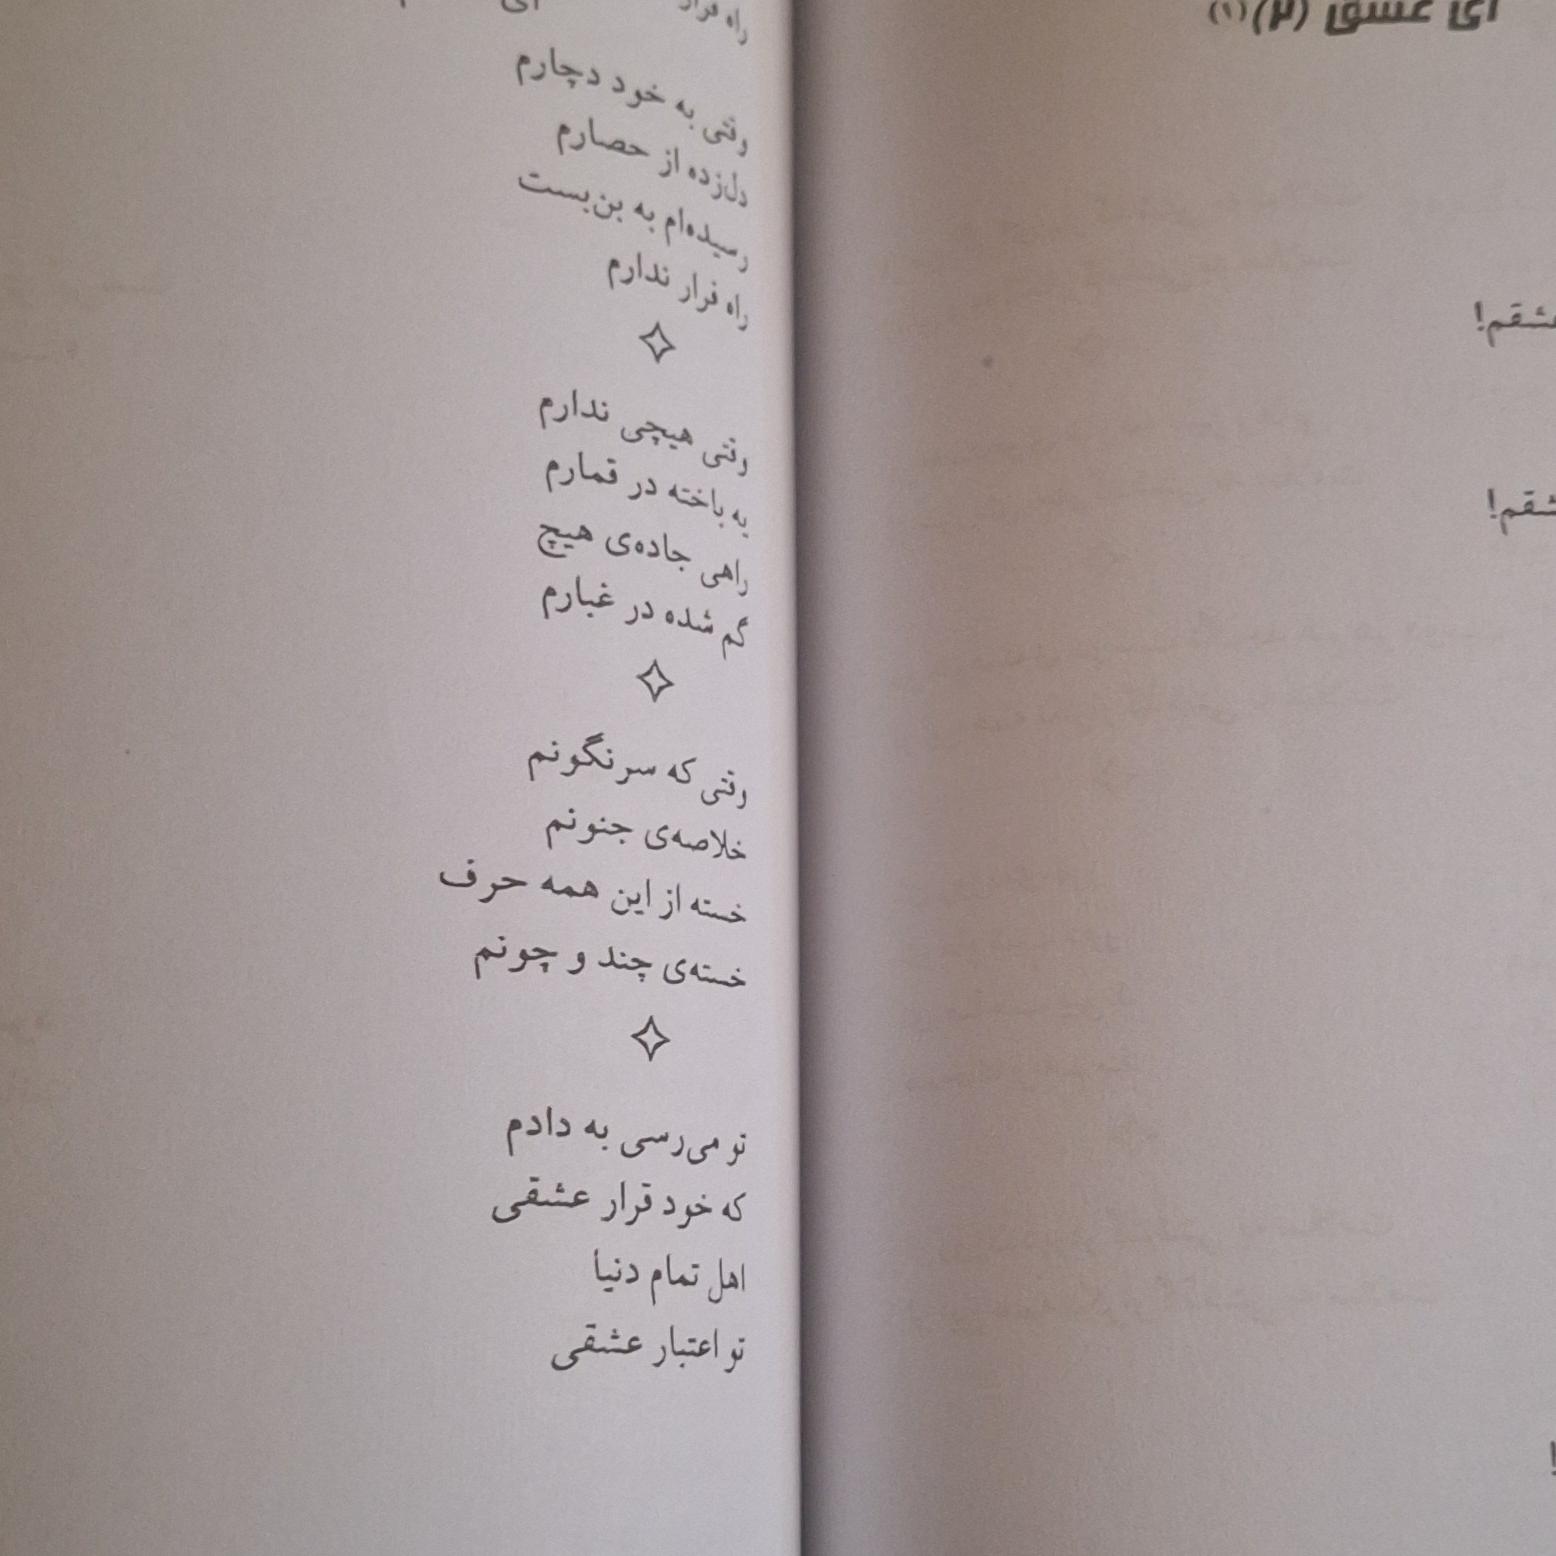 راه فرار
وقتی به خود دچارم
دل‌زده از حصارم
رسیده‌ام به بن‌بست
راه فرار ندارم
وقتی هیچی ندارم
یه باخته در قمارم
راهی جاده‌ی هیچ
گم شده در غبارم
وقتی که سرنگونم
خلاصه‌ی جنونم
خسته از این همه حرف
خسته‌ی چند و چونم
تو می‌رسی به دادم
که خود قرار عشقی
اهل تمام دنیا
تو اعتبار عشقی
ای عشق (۲)(۱)
عشقم!